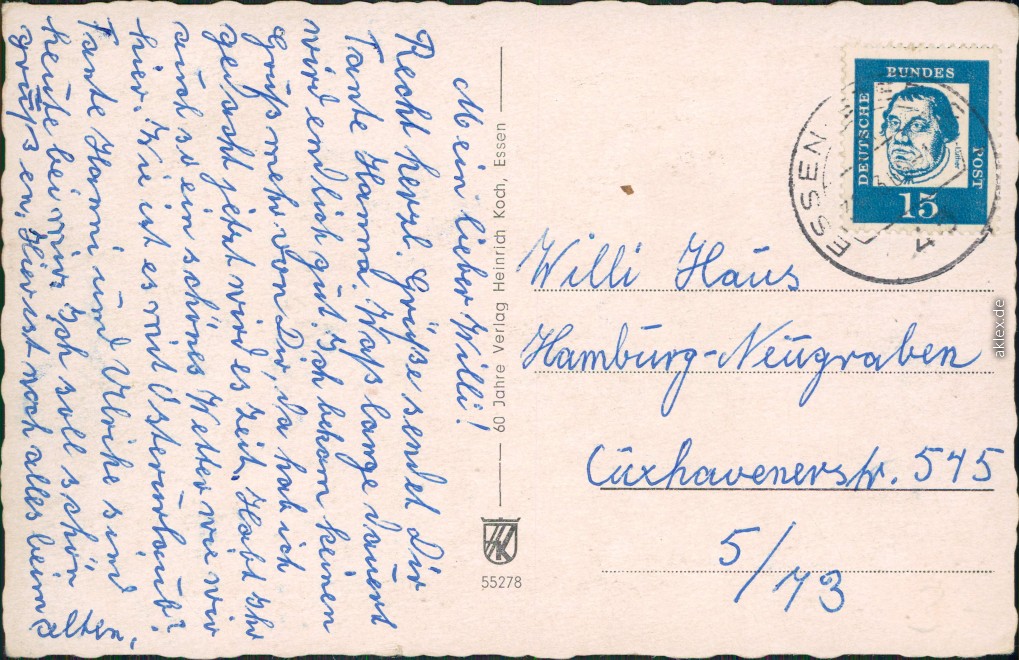 Mein lieber Willi!
Recht herzl. Grüße sendet Dir
Tante Hanna. Waß lange dauert
wird endlich gut. Ich bekam keinen
Gruß mehr von Dir, da hab ich
gedacht jetzt wird es Zeit. Habt Ihr
auch so ein schönes Wetter wie wir
hier. Wie ist es mit Osterurlaub?
Tante Hanni und Ulrike sind
heute bei mir. Ich soll schön
grüßen. Hier ist noch alles beim
alten.
60 Jahre Verlag Heinrich Koch, Essen
HK
55278
DEUTSCHE
BUNDES
POST
15
ESSEN
Willi Haus
Hamburg-Neugraben
Cuxhavenerstr. 545
5/73
aklex.de